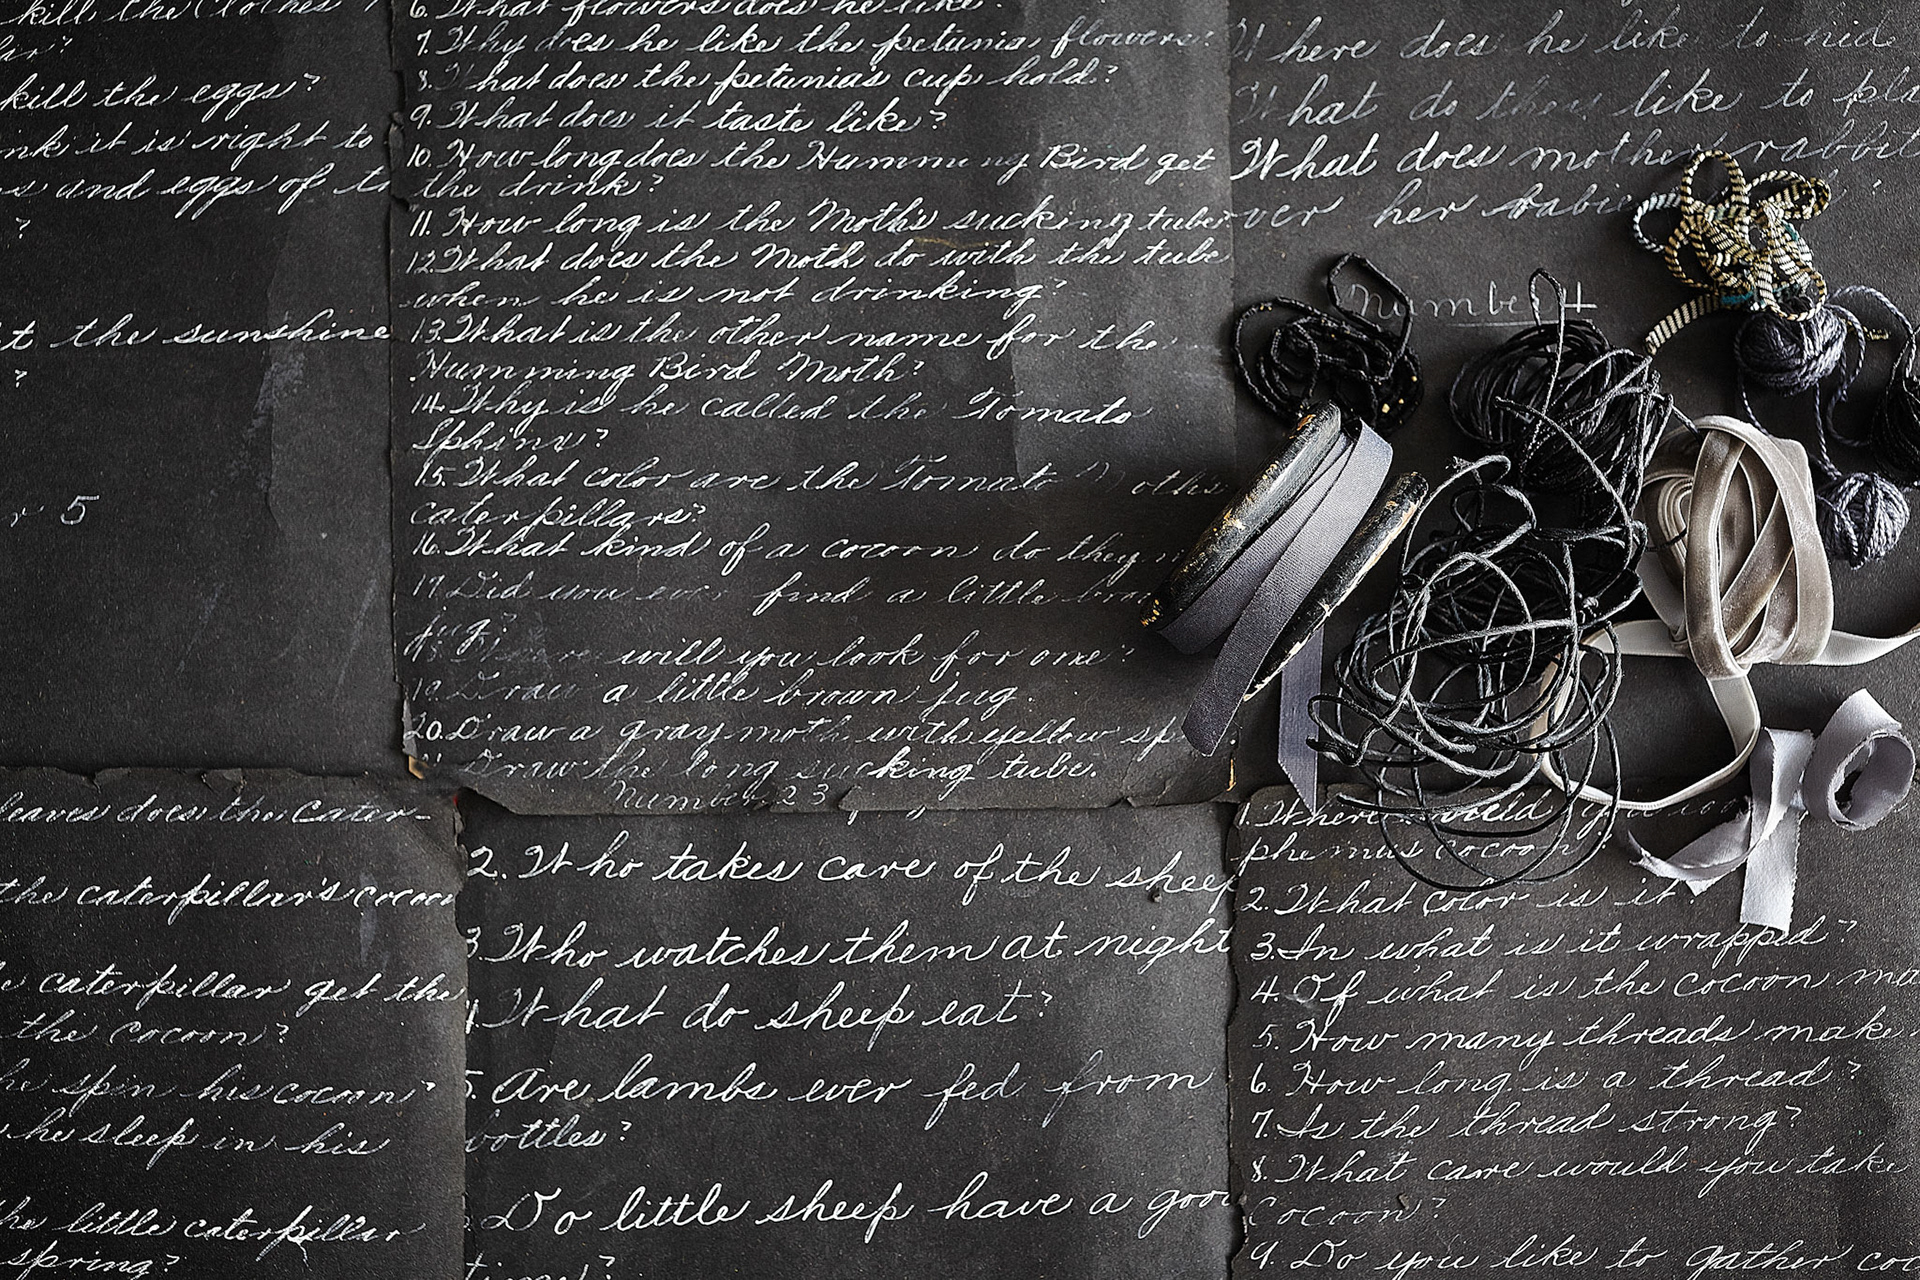 kill the clothes
kill the eggs?
it is right to
and eggs of
?
the sunshine
?
5
6. What flowers does he like?
7. Why does he like the petunia flowers?
8. What does the petunia's cup hold?
9. What does it taste like?
10. How long does the Humming Bird get
the drink?
11. How long is the Moth's sucking tube
12. What does the Moth do with the tube
when he is not drinking?
13. What is the other name for the
Humming Bird Moth?
14. Why is he called the Tomato
Sphinx?
15. What color are the Tomato Moths
caterpillars?
16. What kind of a cocoon do they
17. Did you ever find a little brown
jug?
18. Where will you look for one?
19. Draw a little brown jug.
20. Draw a gray moth with yellow
21. Draw the long sucking tube.
Number 23
Where does he like to hide
What do they like to
What does mother rabbit
over her babies
Number 4
leaves does the cater-
the caterpillar's cocoon
caterpillar get the
the cocoon?
he spin his cocoon?
he sleep in his
little caterpillar
spring?
2. Who takes care of the sheep
3. Who watches them at night
4. What do sheep eat?
5. Are lambs ever fed from
bottles?
Do little sheep have a
1. Where would you
cocoon
2. What color is it?
3. In what is it wrapped?
4. Of what is the cocoon
5. How many threads make
6. How long is a thread?
7. Is the thread strong?
8. What care would you take
cocoon?
9. Do you like to gather